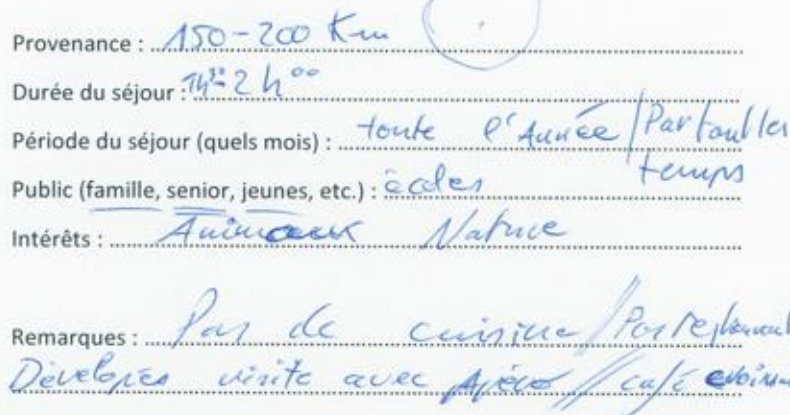 Provenance : 150-200 Km
Durée du séjour : 1h30-2h00
Période du séjour (quels mois) : toute l'Année / Par tout les temps
Public (famille, senior, jeunes, etc.) : écoles
Intérêts : Animaux Nature
Remarques : Pas de cuisine // Pas
Développer visite avec Apéro // café